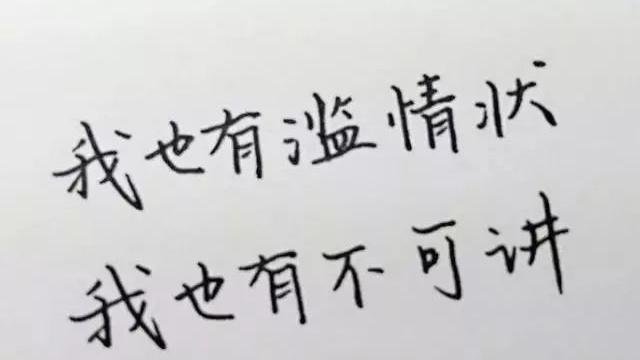 我也有滥情状
我也有不可讲